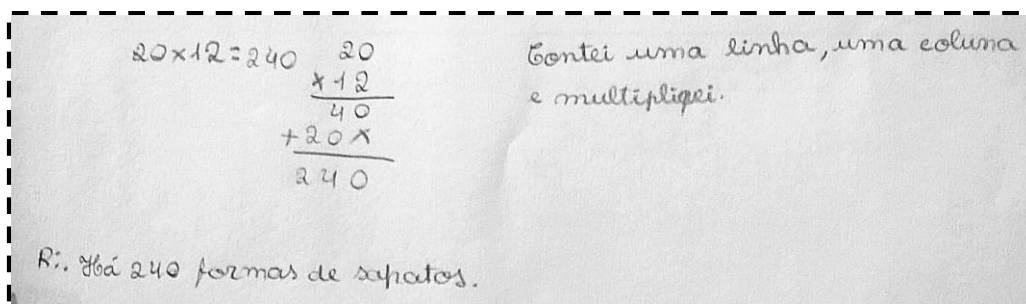 20×12=240
20
×12
40
+20×
240
Contei uma linha, uma coluna
e multipliqei.
R:. Há 240 formas de sapatos.